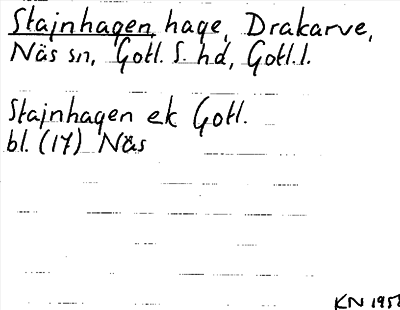 Stajnhagen, hage, Drakarve,
Näs sn, Gotl. S. hd, Gotl.l.
Stajnhagen ek Gotl.
bl. (17) Näs
KN 195